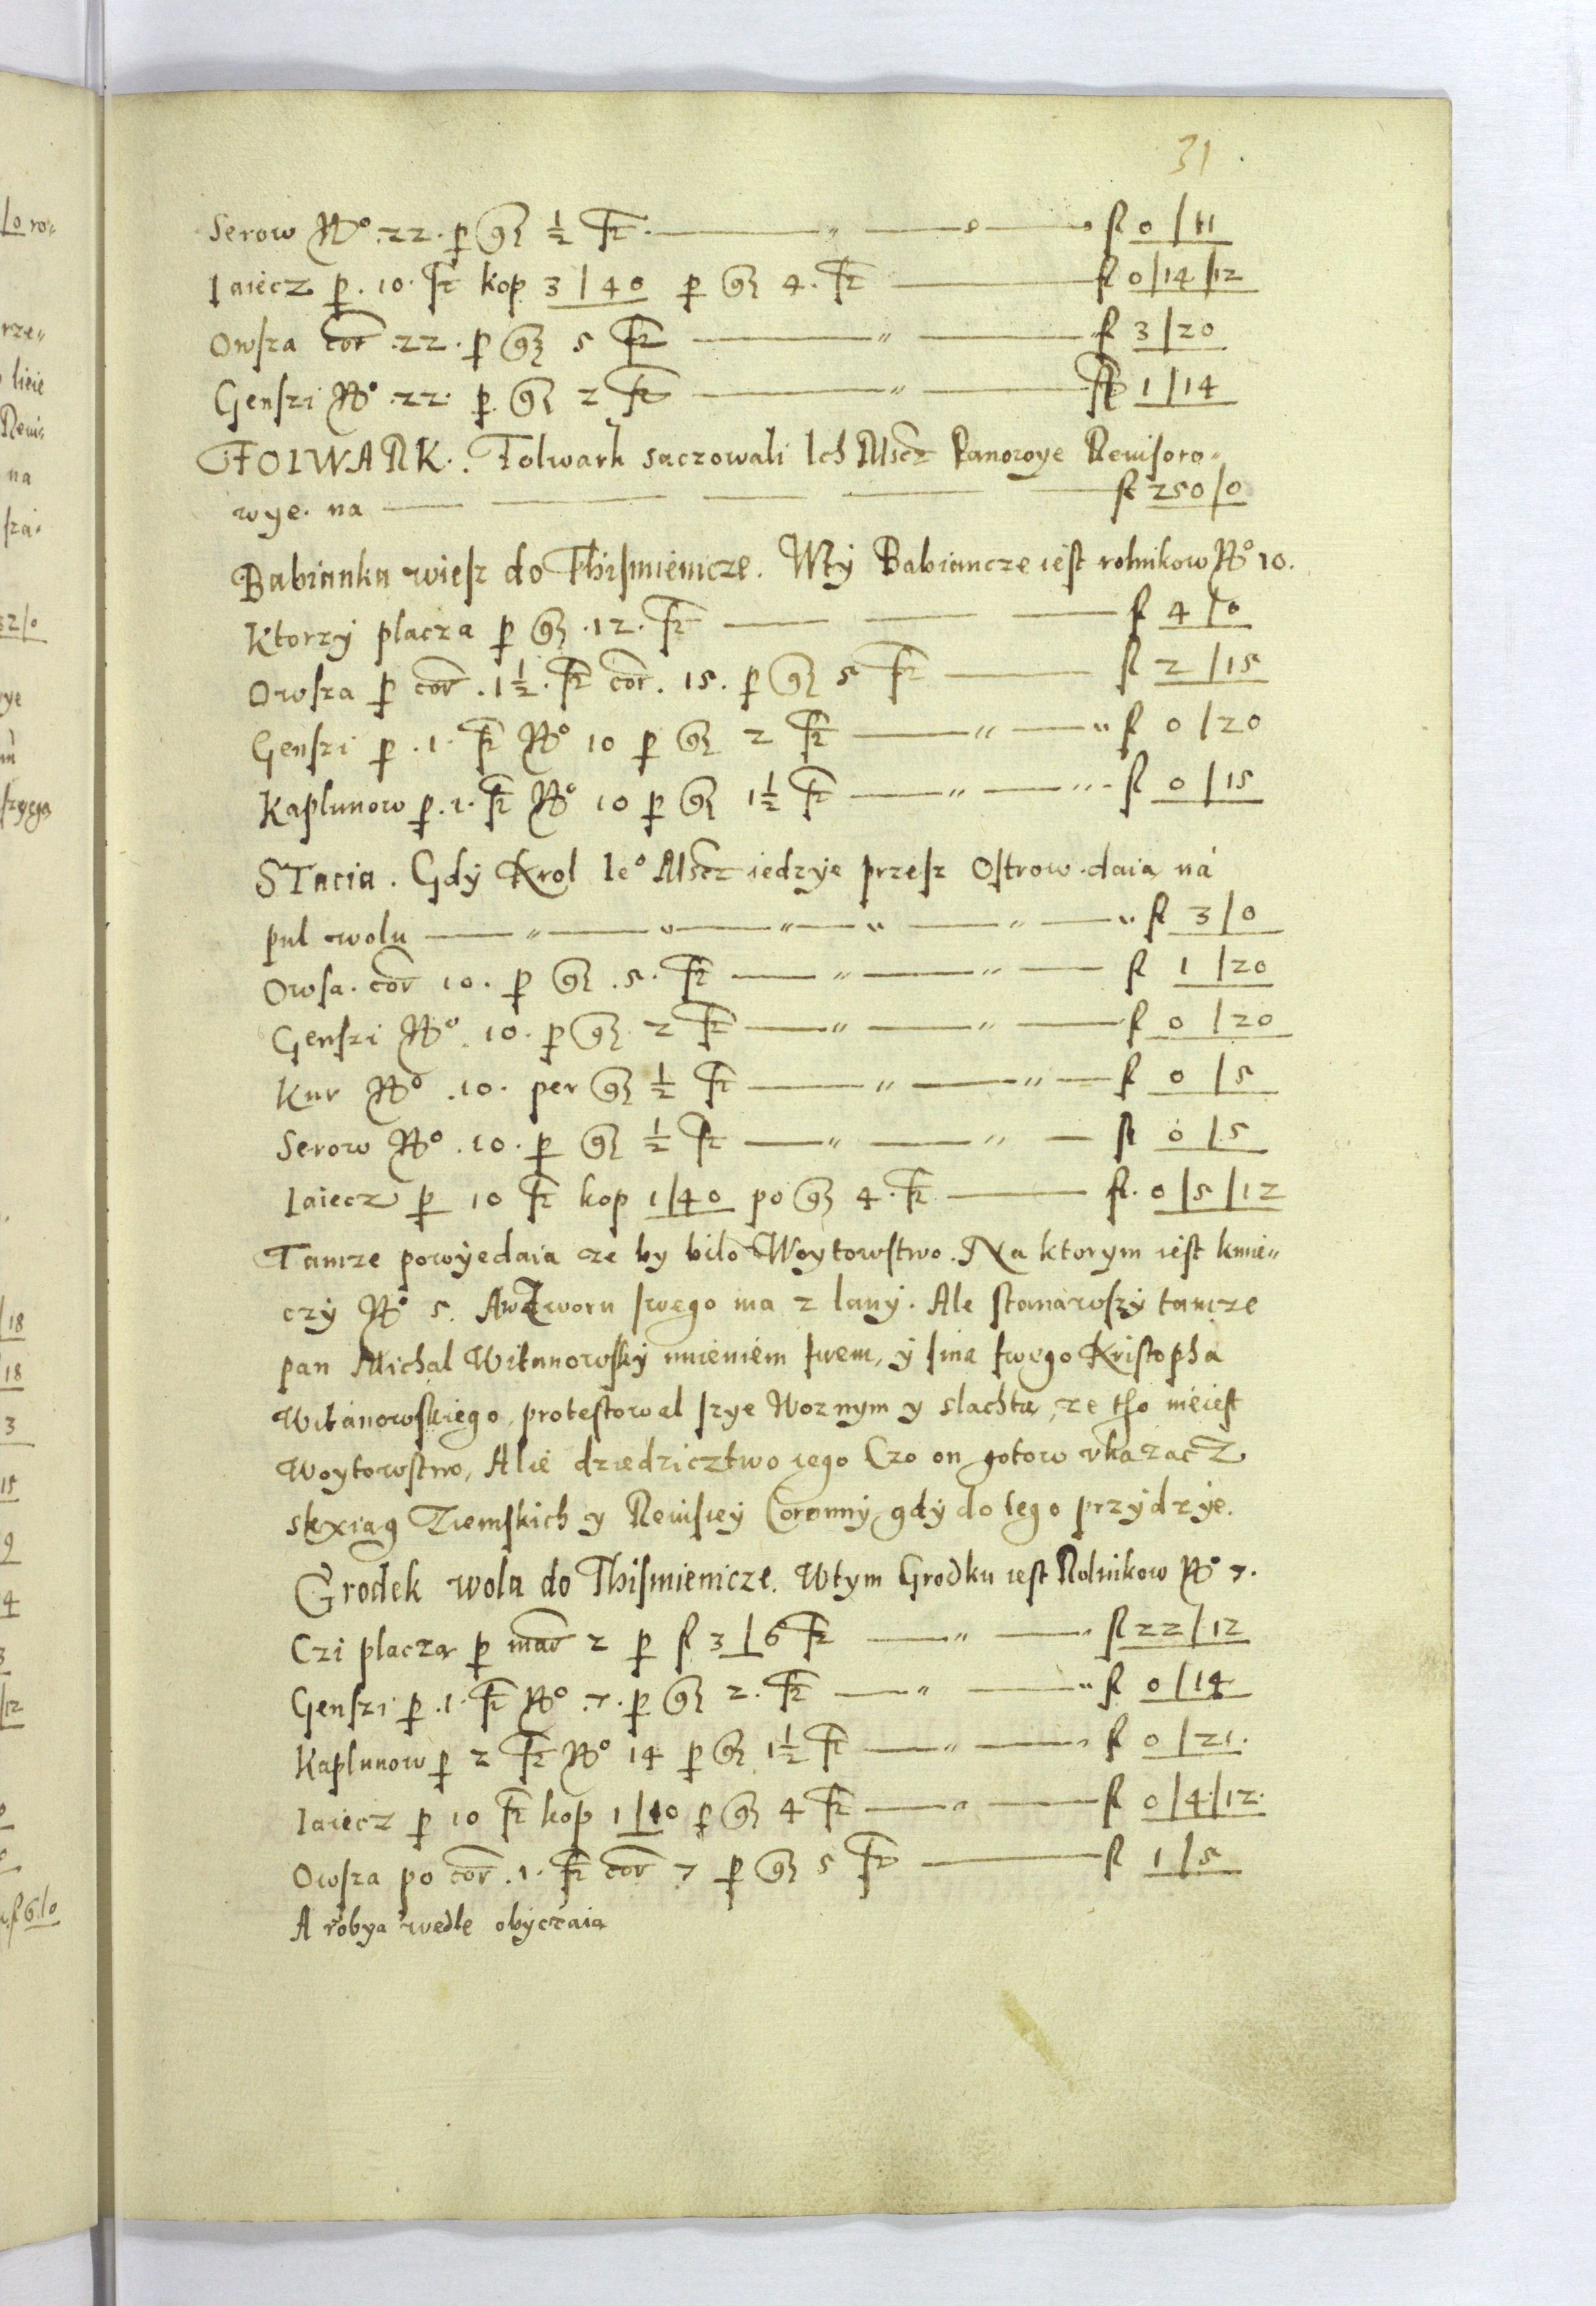 31
Serow No 22. p gr ½ fr. fl 0/11
Iaiecz p. 10. fr kop 3/40 p gr 4. fr fl 0/14/12
Owsza cor 22. p gr 5 fr fl 3/20
Genszi No 22. p. gr 2 fr fl 1/14
FOLWARK. Folwark saczowali Ich Mscz Panowye Reuisoro-
wye. na fl 250/0
Babianka wiesz do Thismienicze. Wtÿ Babiancze iest rolnikow No 10.
Ktorzÿ placza p gr .12. fr fl 4/0
Owsza p cor .1½. fr cor. 15. p gr 5 fr fl 2/15
Genszi p .1. fr No 10 p gr 2 fr fl 0/20
Kaplunow p .1. fr No 10 p gr 1½ fr fl 0/15
STacia. Gdÿ Krol Ieo Mscz iedzye przesz Ostrow daia na
pul wolu fl 3/0
Owsa. cor 10. p gr .5. fr fl 1/20
Genszi No. 10. p gr 2 fr fl 0/20
Kur No .10. per gr ½ fr fl 0/5
Serow No .10. p gr ½ fr fl 0/5
Iaiecz p 10 fr kop 1/40 po gr 4. fr fl. 0/5/12
Tamze powÿedaia ze by bilo Woytowstwo. Na ktorym iest kmie-
czÿ No 5. swego ma 2 lanÿ. Ale stanawszÿ tamze
pan Michal Witanowskÿ imieniem swem, ÿ sina swego Kristopha
Witanowskiego, protestowal szye Woznym y slachta, ze tho nieiest
Woytowstwo, Alie dziedzicztwo iego Czo on gotow vkazacz
skxiag Ziemskich y Reuisiey Coronnÿ gdÿ do tego przÿdzÿe.
Grodek wola do Thismienicze. Wtym Grodku iest Rolnikow No 7.
Czi placza p mar 2 p fl 3/6 fr fl 22/12
Genszi p .1. fr No .7. p gr 2. fr fl 0/14
Kaplunow p 2 fr No 14 p gr 1½ fr fl 0/21.
Iaiecz p 10 fr kop 1/10 p gr 4 fr fl 0/4/12.
Owsza po cor .1. fr cor 7 p gr 5 fr fl 1/5
A robya wedle obÿczaia